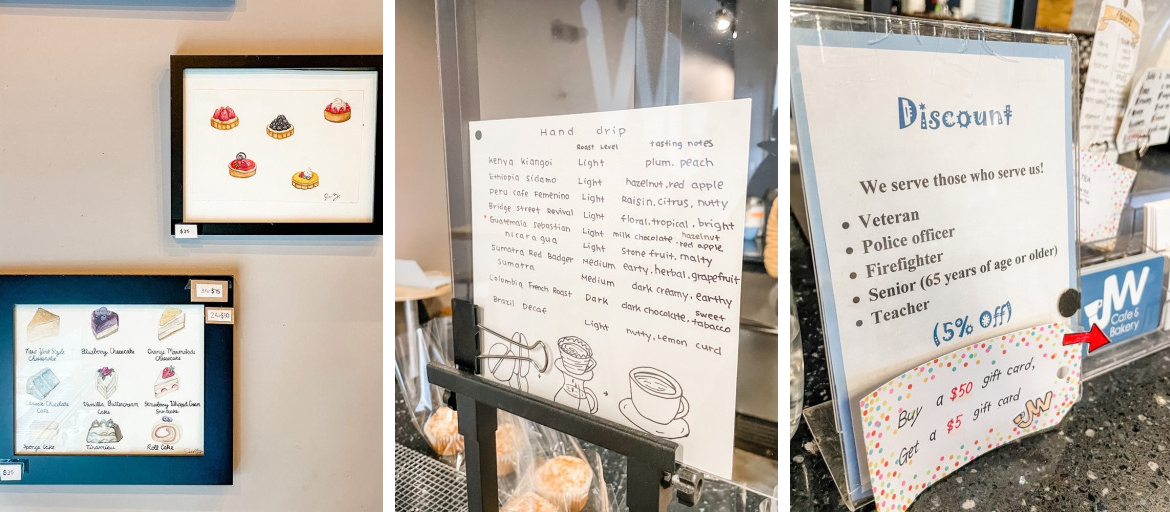 $25
New York Style
Cheesecake
Blueberry Cheesecake
Orange Marmalade
Cheesecake
Classic Chocolate
Cake
Vanilla Buttercream
Cake
Strawberry Whipped Cream
Shortcake
Sponge Cake
Tiramisu
Roll Cake
Hand drip
Roast Level tasting notes
Kenya Kiangoi Light plum, peach
Ethiopia Sidamo Light hazelnut, red apple
Peru Cafe Femenino Light Raisin, citrus, nutty
Bridge Street Revival Light floral, tropical, bright
*Guatemala Sebastian Light milk chocolate hazelnut red apple
nicaragua Light Stone fruit, malty
Sumatra Red Badger Medium earty, herbal, grapefruit
Sumatra Medium dark creamy, earthy
Colombia French Roast Dark dark chocolate, sweet tobacco
Brazil Decaf Light nutty, lemon curd
Discount
We serve those who serve us!
• Veteran
• Police officer
• Firefighter
• Senior (65 years of age or older)
• Teacher
(5% Off)
Buy a $50 gift card,
Get a $5 gift card
JW
JW
Cafe &
Bakery
TEA